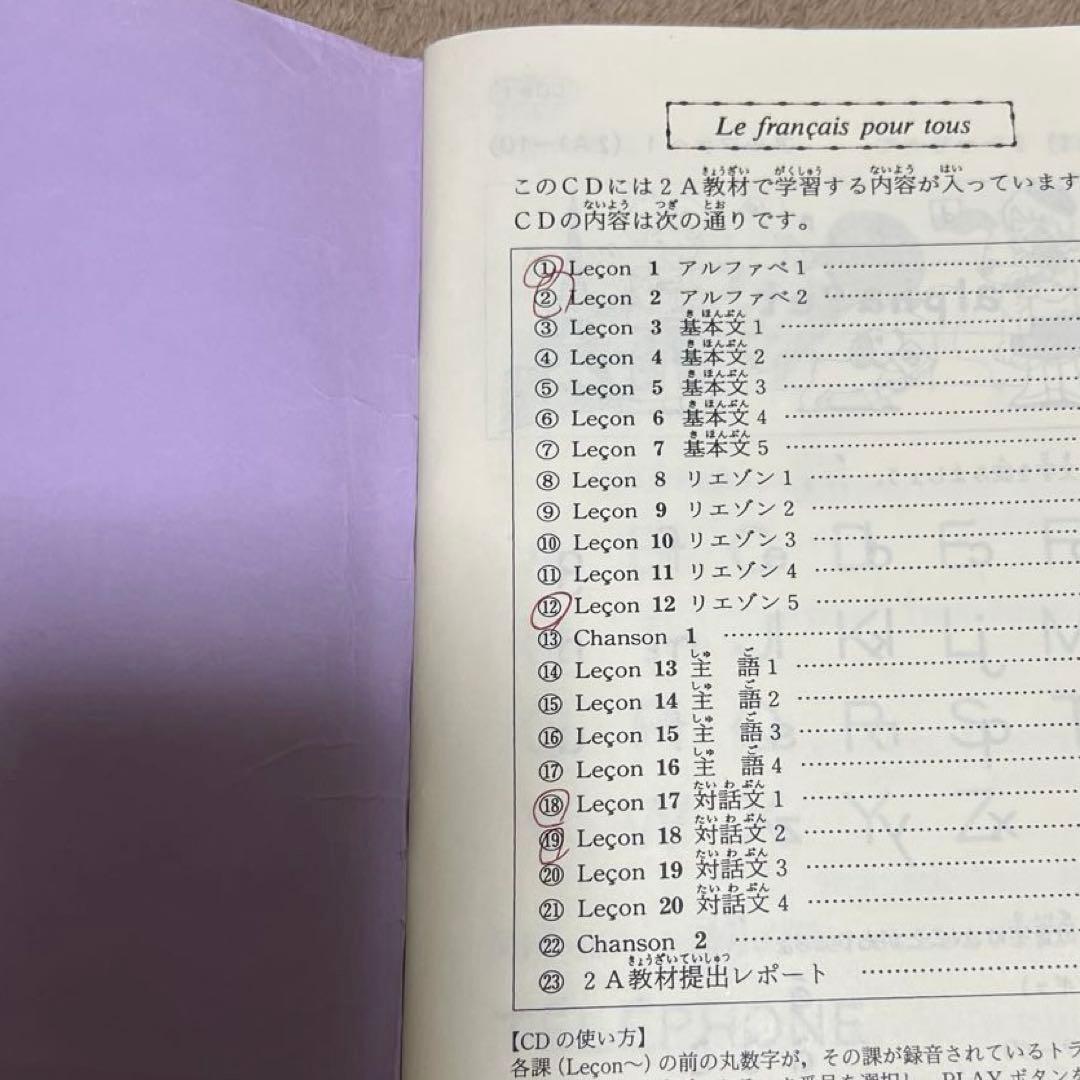 Le français pour tous
このCDには2A教材で学習する内容が入っています
CDの内容は次の通りです。
① Leçon 1 アルファベ1
② Leçon 2 アルファベ2
③ Leçon 3 基本文1
④ Leçon 4 基本文2
⑤ Leçon 5 基本文3
⑥ Leçon 6 基本文4
⑦ Leçon 7 基本文5
⑧ Leçon 8 リエゾン1
⑨ Leçon 9 リエゾン2
⑩ Leçon 10 リエゾン3
⑪ Leçon 11 リエゾン4
⑫ Leçon 12 リエゾン5
⑬ Chanson 1
⑭ Leçon 13 主 語1
⑮ Leçon 14 主 語2
⑯ Leçon 15 主 語3
⑰ Leçon 16 主 語4
⑱ Leçon 17 対話文1
⑲ Leçon 18 対話文2
⑳ Leçon 19 対話文3
㉑ Leçon 20 対話文4
㉒ Chanson 2
㉓ 2A教材提出レポート
【CDの使い方】
各課(Leçon～)の前の丸数字が,その課が録音されているトラ